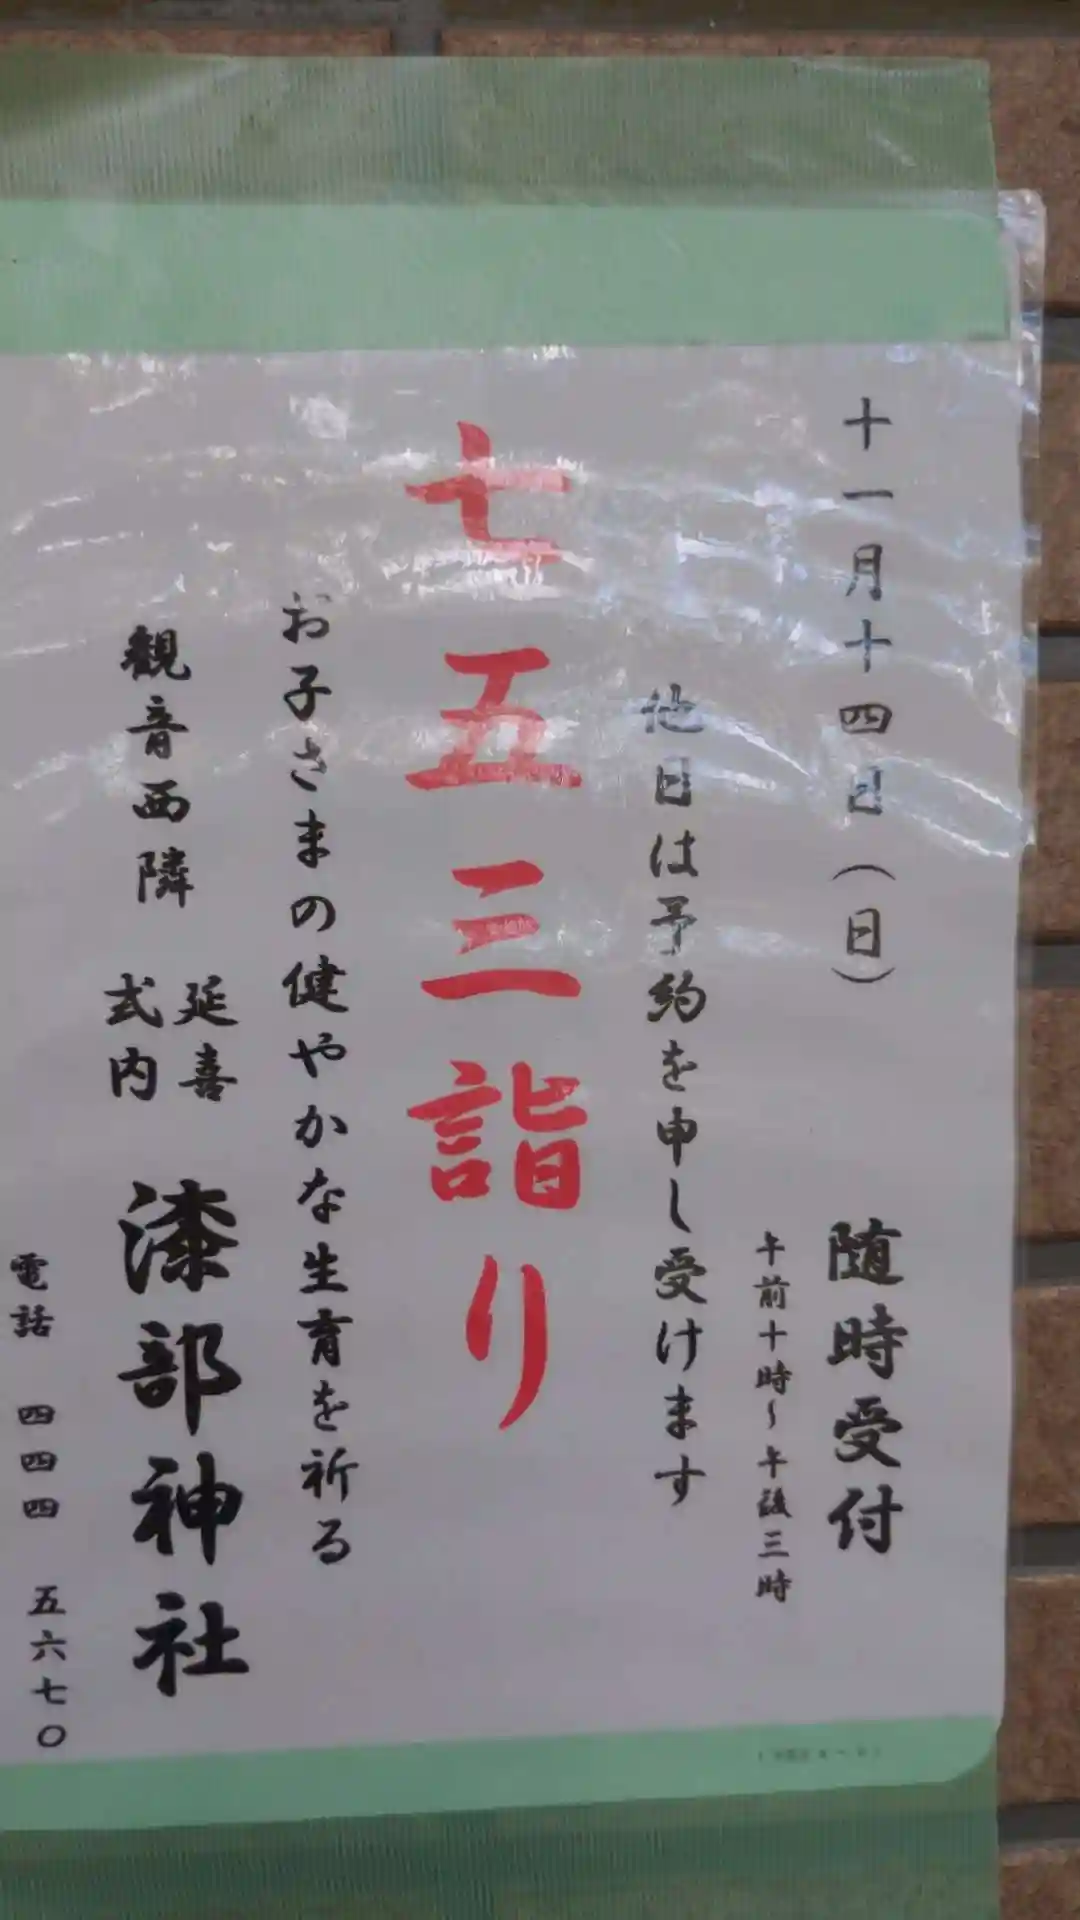 十一月十四日(日) 随時受付
午前十時~午後三時
他日は予約を申し受けます
七五三詣り
お子さまの健やかな生育を祈る
観音西隣 延喜式内 漆部神社
電話 四四四 五六七〇